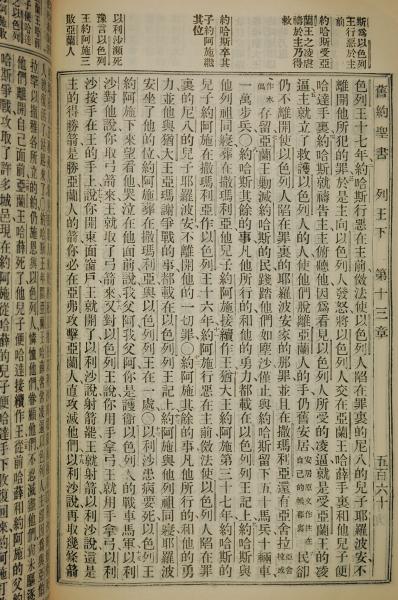 舊約聖書 列王下 第十三章 五百六十
斯為以色列
王行惡於主
前
約哈斯受亞
蘭王之凌虐
禱於主乃得
救
約哈斯卒其
子約阿施繼
其位
以利沙瀕死
豫言以色列
王約阿施三
敗亞蘭人
色列王十七年約哈斯行惡在主前傚法使以色列人陷在罪裏的尼八的兒子耶羅波安不
離開他所犯的罪於是主向以色列人發怒將以色列人交在亞蘭王哈薛手裏和他兒子便
哈達手裏約哈斯就禱告主主俯聽他因為看見以色列人所受的凌逼就是受亞蘭王的凌
逼主就立了救護以色列人的人使他們脫離亞蘭人的手仍舊安居安居原文作在自己的帳幕裏民卻
仍不離開使以色列人陷在罪裏的耶羅波安家的那罪並且在撒瑪利亞還有亞舍拉亞舍拉或
作木像存留亞蘭王勦滅約哈斯的民踐踏他們如塵沙僅止與約哈斯留下五十馬兵十輛車
一萬步兵〇約哈斯其餘的事凡他所行的和他的勇力都載在以色列列王記上約哈斯與
他列祖同寢葬在撒瑪利亞他兒子約阿施接續作王猶大王約阿施第三十七年約哈斯的
兒子約阿施在撒瑪利亞作以色列王十六年約阿施行惡在主前傚法使以色列人陷在罪
裏的尼八的兒子耶羅波安不離開他的一切罪〇約阿施其餘的事凡他所行的和他的勇
力並他與猶大王亞瑪謝爭戰的事都載在以色列列王記上約阿施與他列祖同寢耶羅波
安坐了他的位約阿施葬在撒瑪利亞與以色列王在一處〇以利沙患病要死以色列王
約阿施下來望看他哭泣在他面前說我父阿我父阿你是護衛以色列人的戰車馬軍以利
沙對他說你取弓箭來王就取了弓箭來又對以色列王說你用手拿弓王就用手拿弓以利
沙按手在王的手上說你開東面窗戶王就開了以利沙說射箭罷王就射箭以利沙說這是
主的得勝箭是勝亞蘭人的箭你必在亞弗攻擊亞蘭人直攻滅他們以利沙說再取幾條箭